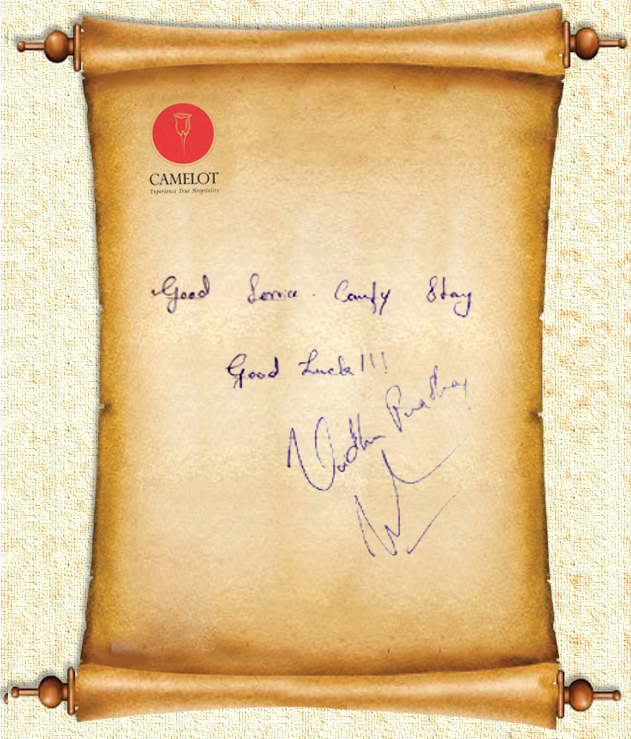 CAMELOT
Experience True Hospitality
Good Service. Comfy Stay
Good Luck!!!